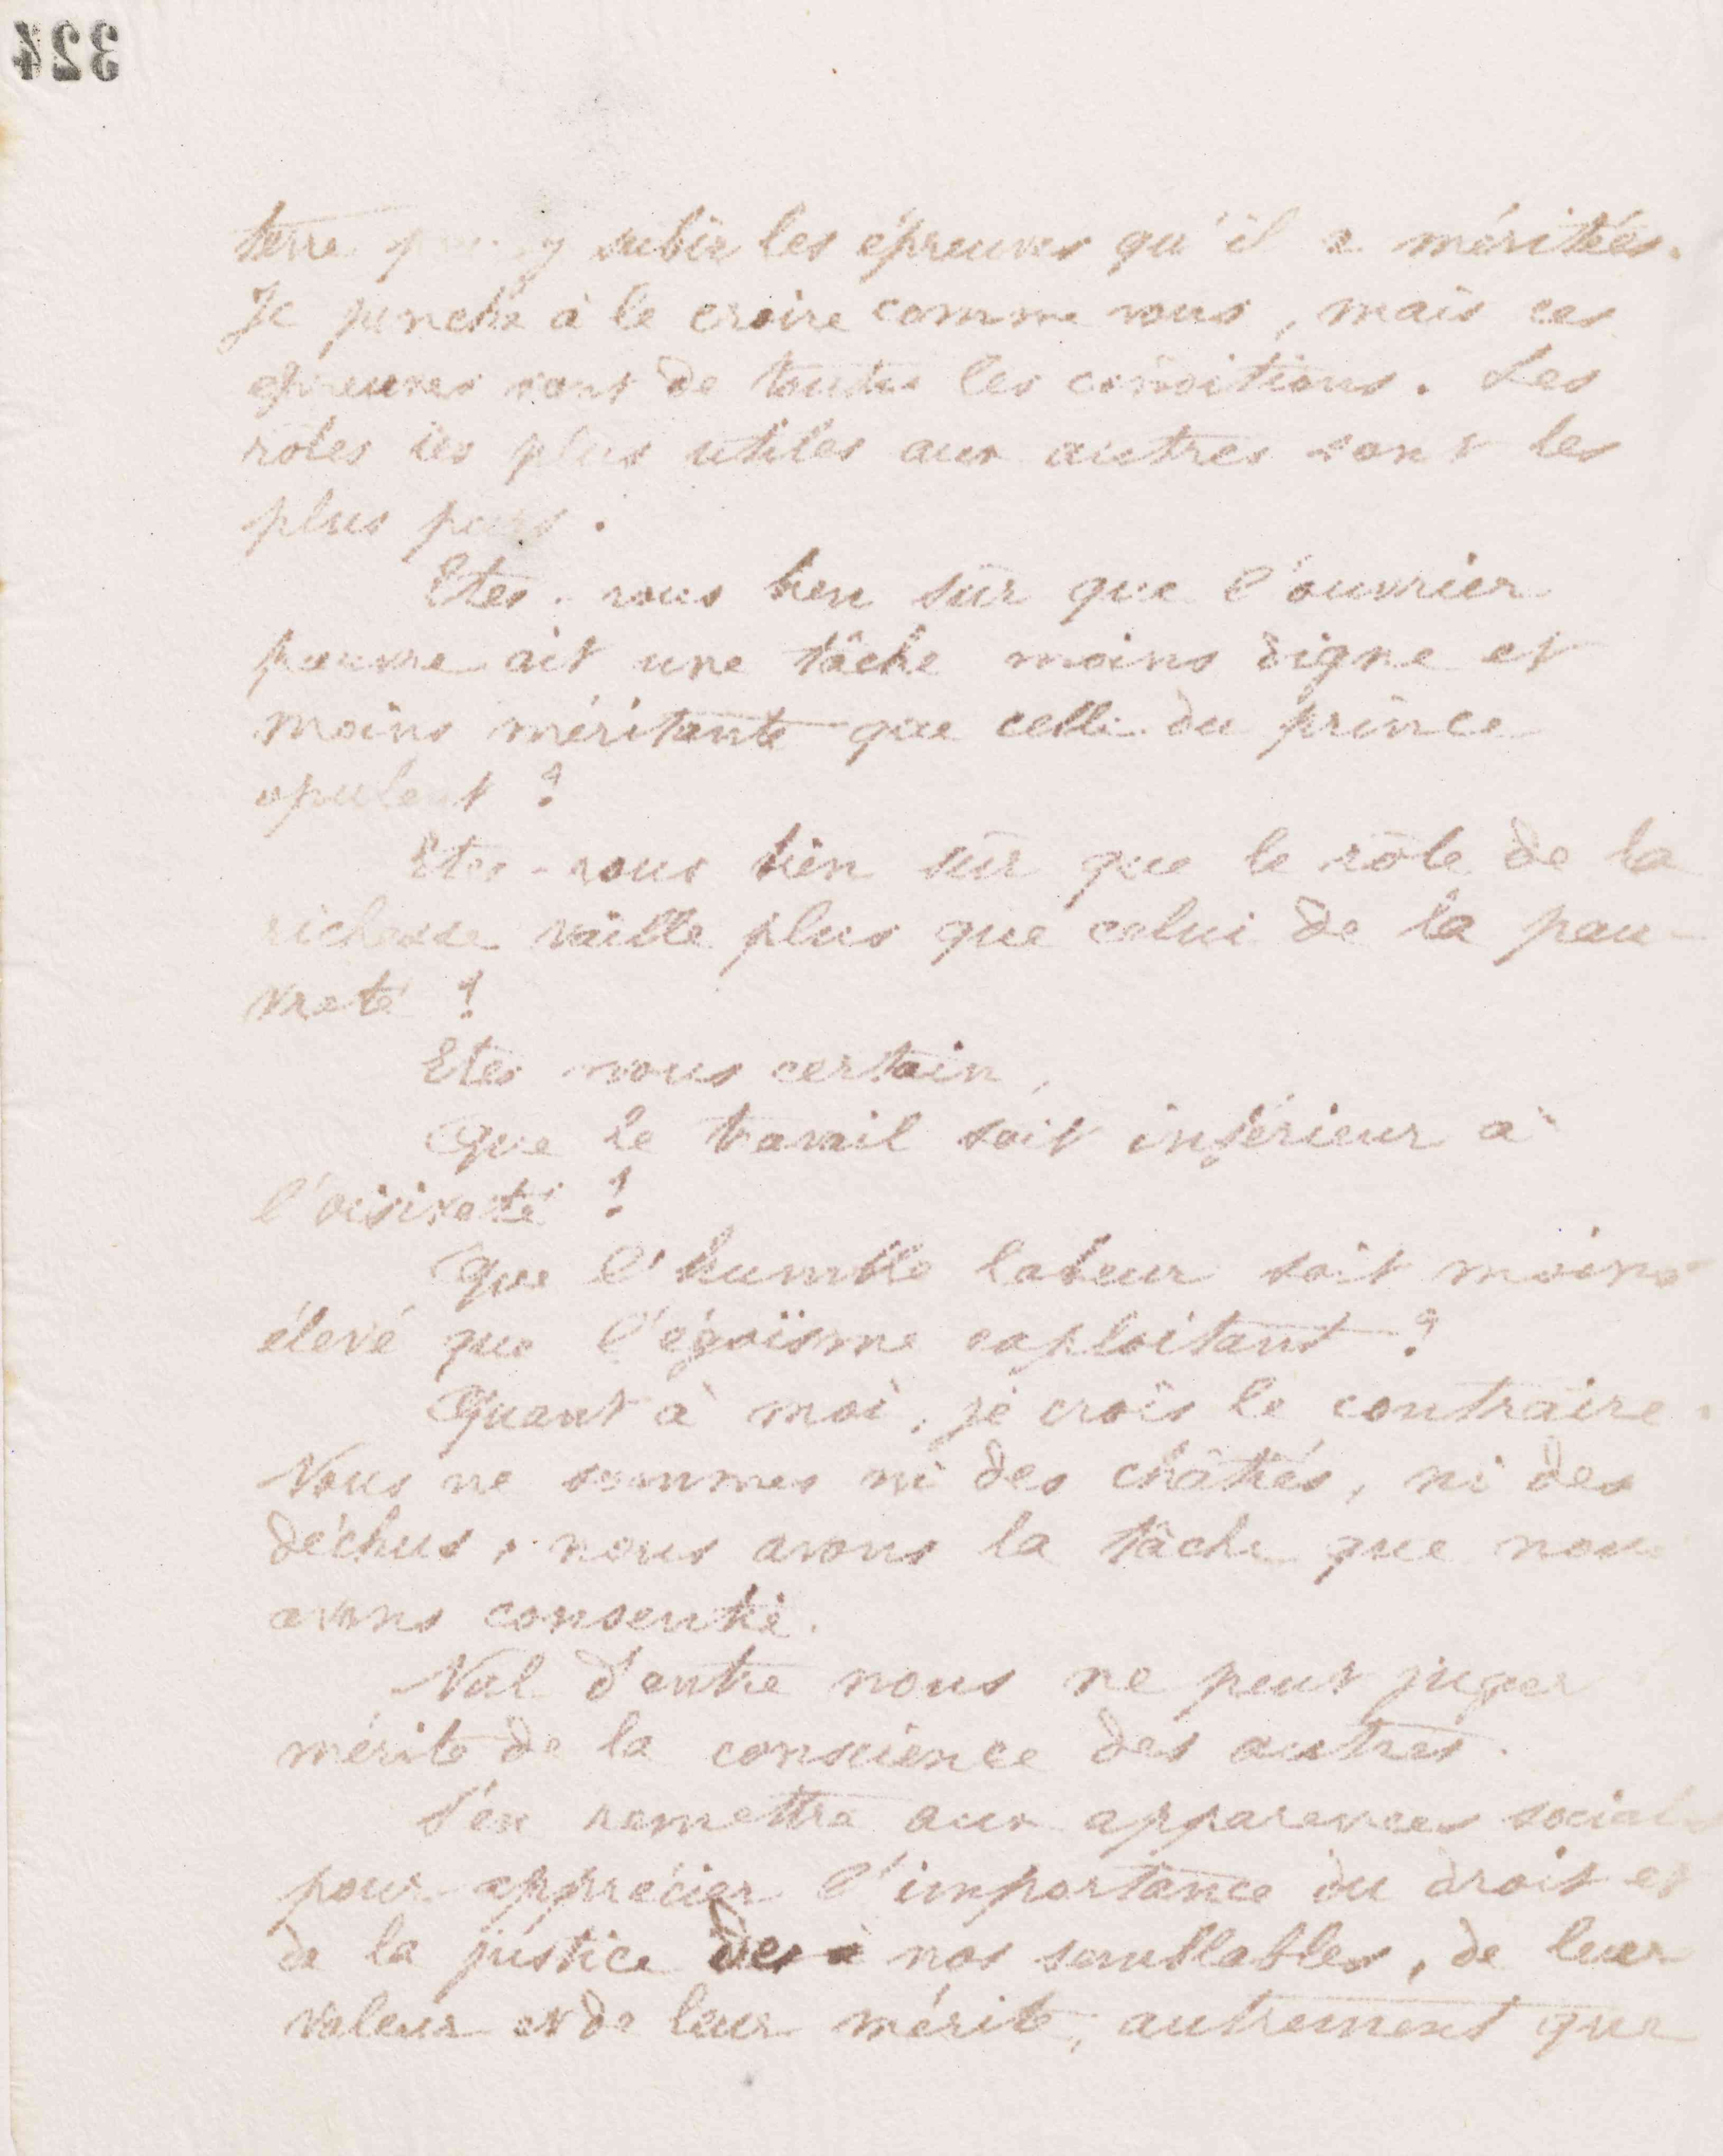 324
terre pour y subir les épreuves qu'il a méritées.
Je penche à le croire comme vous, mais ces
épreuves sont de toutes les conditions. Les
rôles les plus utiles aux autres sont les
plus purs.
Etes-vous bien sûr que l'ouvrier
pauvre ait une tâche moins digne et
moins méritante que celle du prince
opulent ?
Etes-vous bien sûr que le rôle de la
richesse vaille plus que celui de la pau-
vreté ?
Etes vous certain,
Que le travail soit inférieur à
l'oisiveté ?
Que l'humble labeur soit moins
élevé que l'égoïsme exploitant ?
Quant à moi, je crois le contraire.
Nous ne sommes ni des châtiés, ni des
déchus, nous avons la tâche que nous
avons consentie.
Nul d'entre nous ne peut juger
mérite de la conscience des autres.
S'en remettre aux apparences sociales
pour apprécier l'importance du droit et
de la justice des à nos semblables, de leur
valeur et de leur mérite, autrement que